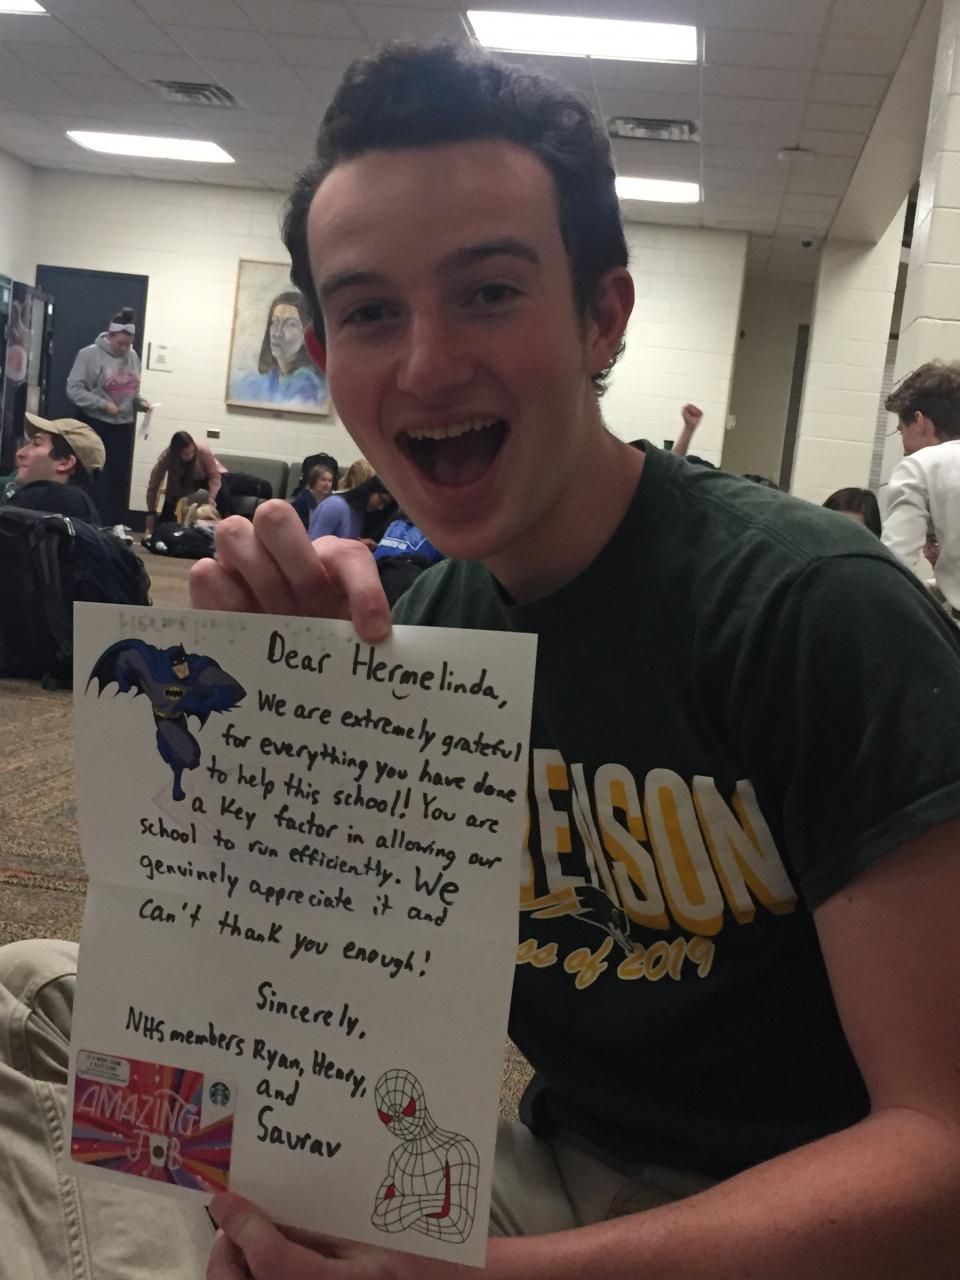 Dear Hermelinda,
We are extremely grateful
for everything you have done
to help this school! You are
a key factor in allowing our
school to run efficiently. We
genuinely appreciate it and
can't thank you enough!
Sincerely,
NHS members Ryan, Henry,
and
Saurav
AMAZING
JOB
ENSON
ss of 2019